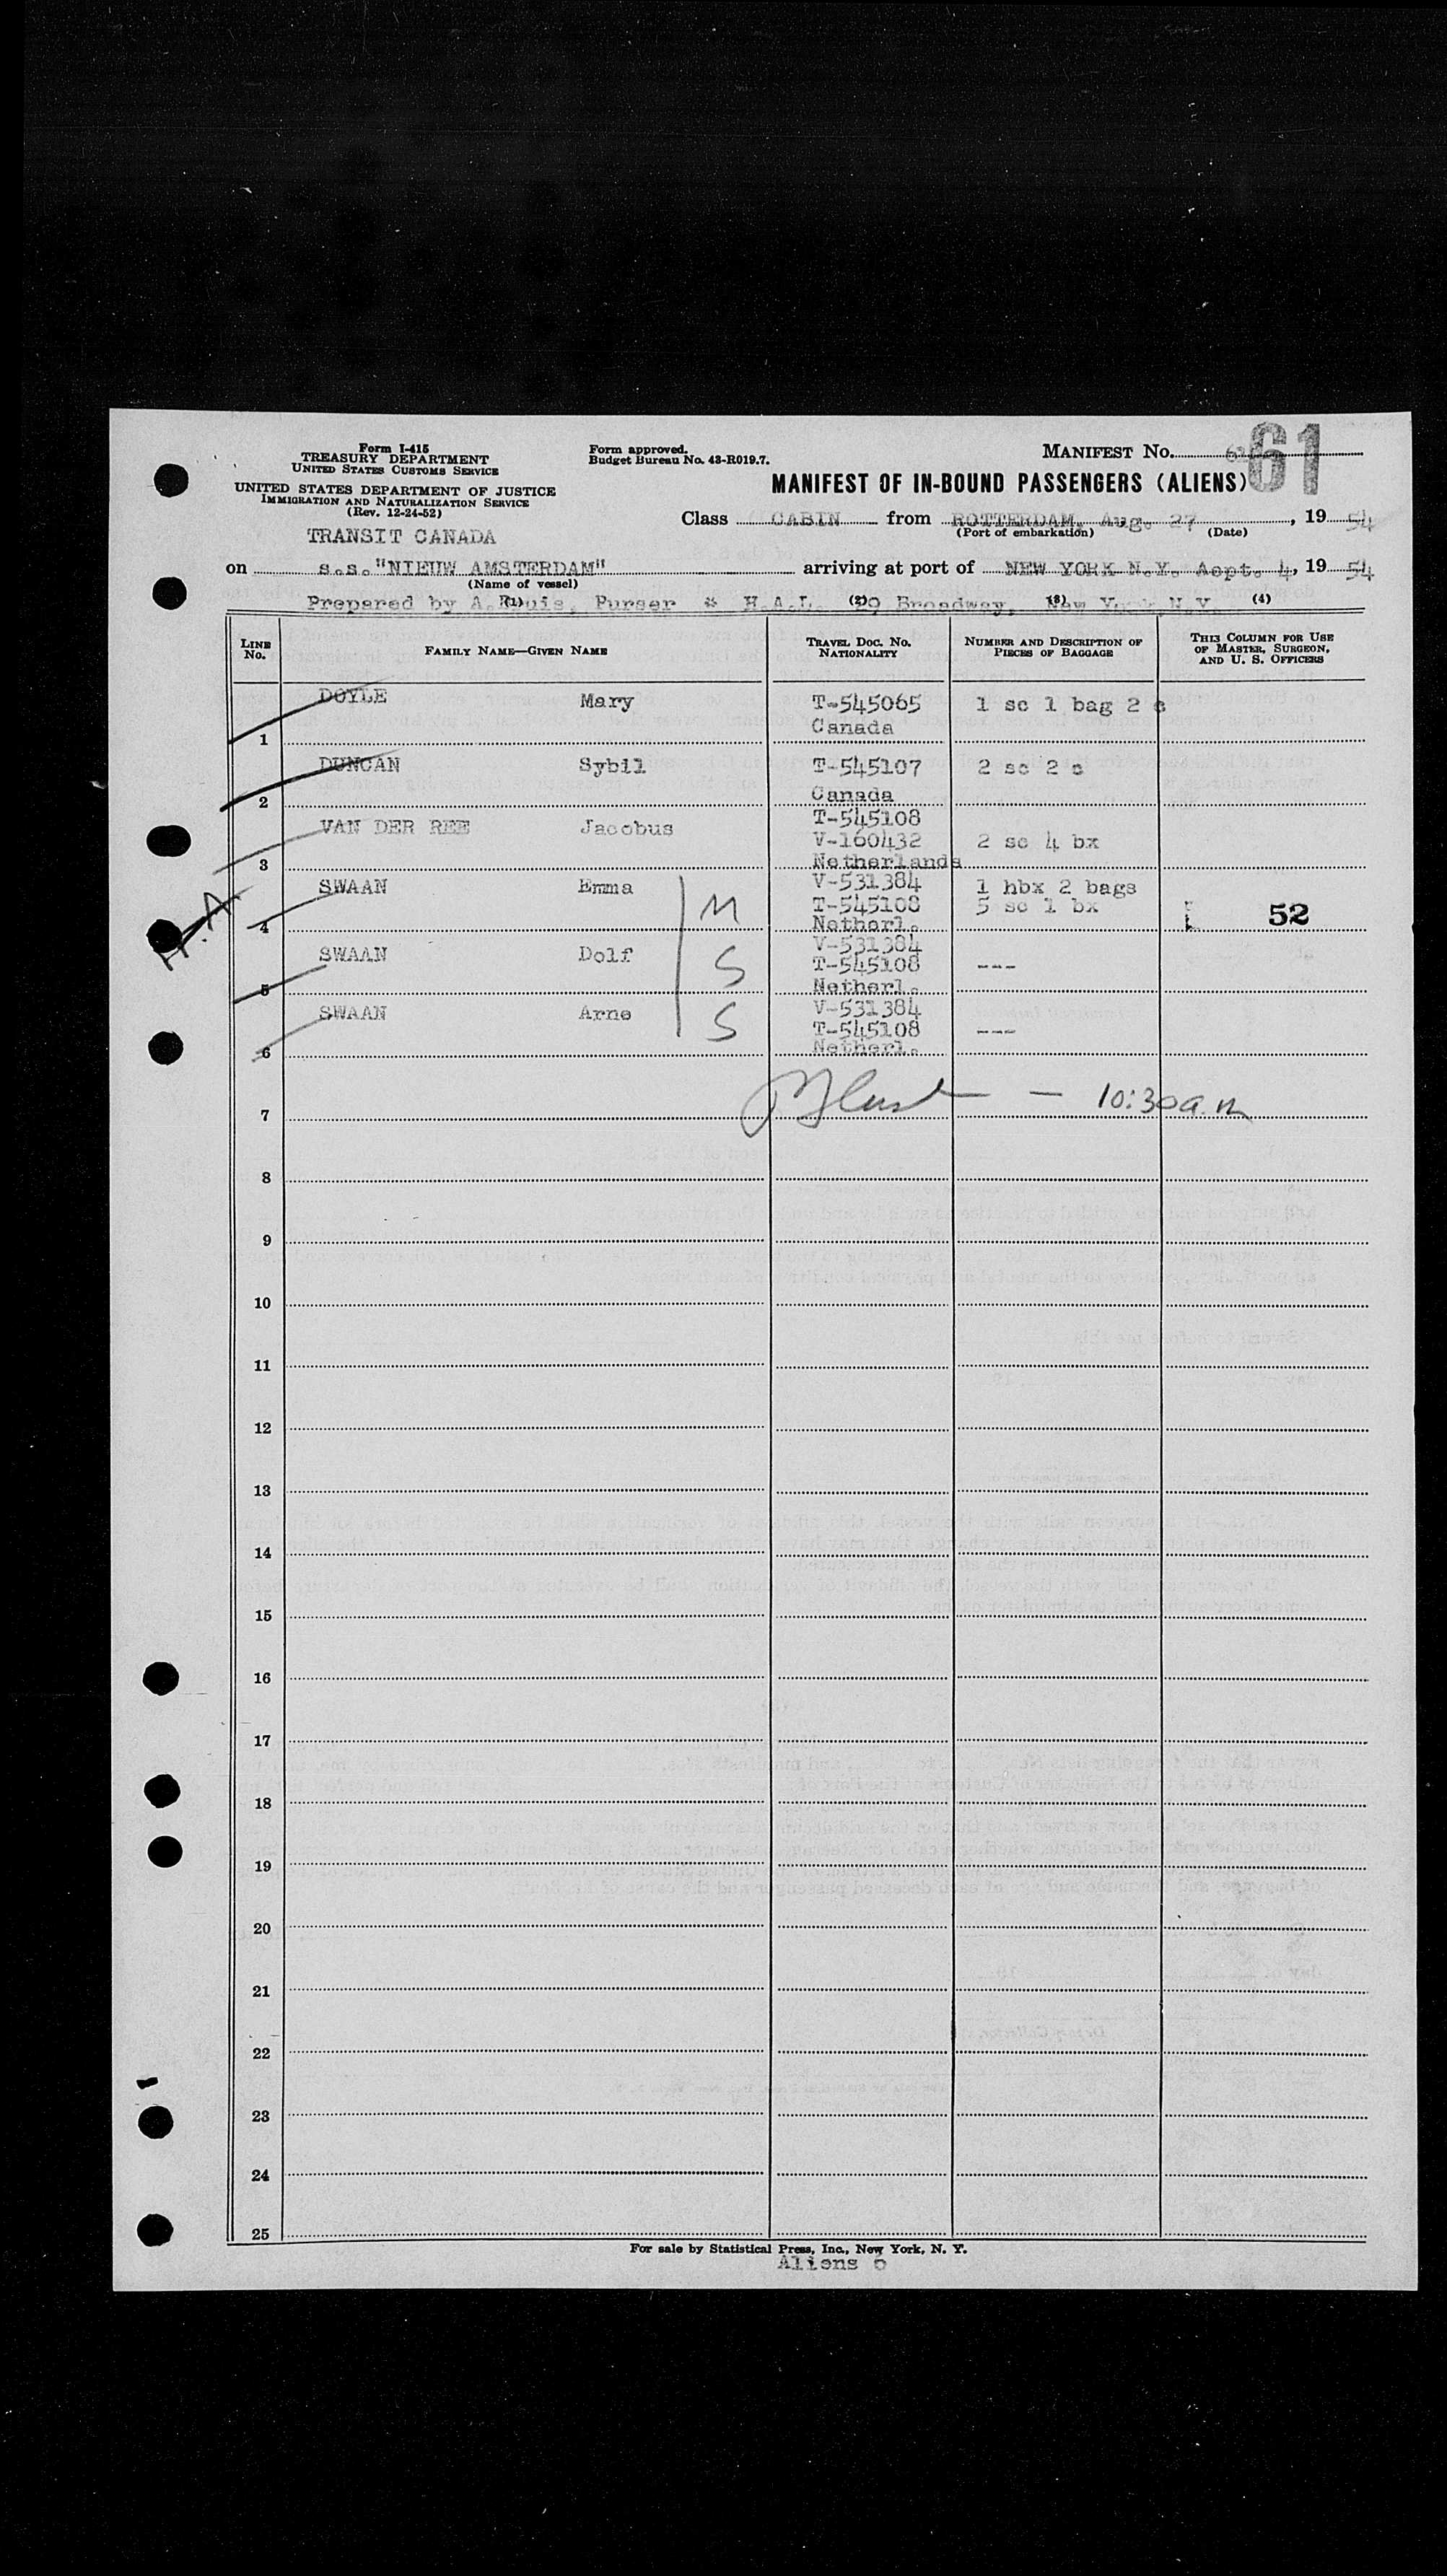 Form I-415
TREASURY DEPARTMENT
UNITED STATES CUSTOMS SERVICE
UNITED STATES DEPARTMENT OF JUSTICE
IMMIGRATION AND NATURALIZATION SERVICE
(Rev. 12-24-52)
Form approved.
Budget Bureau No. 43-R019.7.
MANIFEST No. 61
MANIFEST OF IN-BOUND PASSENGERS (ALIENS)
Class CABIN from ROTTERDAM, Aug. 27, 1954
(Port of embarkation) (Date)
TRANSIT CANADA
on s.s. "NIEUW AMSTERDAM" arriving at port of NEW YORK N.Y. Aept. 4, 1954
(Name of vessel)
Prepared by Purser * H.A.L. 29 Broadway, New York, N.Y.
(1) (2) (3) (4)
LINE No. FAMILY NAME—GIVEN NAME TRAVEL DOC. NO. NATIONALITY NUMBER AND DESCRIPTION OF PIECES OF BAGGAGE THIS COLUMN FOR USE OF MASTER, SURGEON, AND U. S. OFFICERS
DOYLE Mary T-545065 1 sc 1 bag 2 c
1 Canada
DUNCAN Sybil T-545107 2 sc 2 c
2 Canada
VAN DER REE Jacobus T-545108
V-160432 2 sc 4 bx
3 Netherlands
SWAAN Emma M V-531384 1 hbx 2 bags
T-545108 5 sc 1 bx 52
4 Netherl.
SWAAN Dolf S V-531384
T-545108 ---
5 Netherl.
SWAAN Arne S V-531384
T-545108 ---
6 Netherl.
H.A
7 — 10:30 a.m
8
9
10
11
12
13
14
15
16
17
18
19
20
21
22
23
24
25
For sale by Statistical Press, Inc., New York, N. Y.
Aliens 6